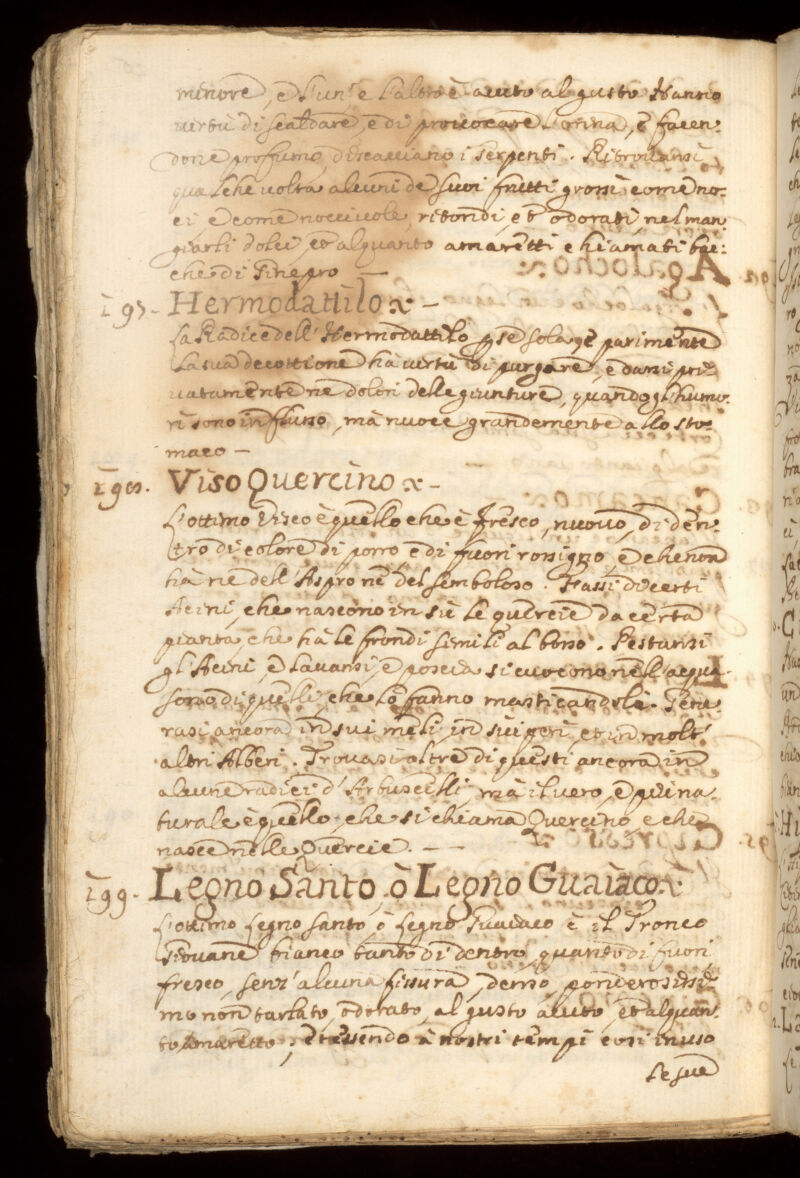 minore, e l'un' e l'altro è acuto al gusto Hanno
virtù di scaldare, e di provocare l'orina, e facen:
done profumo, discacciano i serpenti. Ritrovansi
qualche volta alcuni de suoi frutti grossi come no:
ci, e come nocciuole, ritondi, et odorati, nel man:
giarli dolci, et alquanto amaretti chiamati bac:
che di Ginepro —
197. Hermodattilo :—
La Radice dell' Hermodattilo p se sola, et parimente
la sua decottione ha virtù di purgare, e dassi pri:
vatamente ne dolori delle giunture, quando gl'humo:
ri sono in flusso, mà nuoce grandemente allo sto:
maco —
198. Viso Quercino :—
L'ottimo Visco è quello che è fresco, nuovo, di den:
tro di colore di porro, e di fuori rossigno, e che non
hà ne dell' Aspro ne del semboloso. Fassi di certi
Acini, che nascono in sù le quercie da certa
pianta, che hà le frondi simili al bosso. Pestansi
gl'Acini, e lavansi, e poscia si cuocono nell' acqua
sono di quelli, che lo fanno masticandoli. Gene:
rasi ancora in sui meli, in sui peri, et in molt'
altri Alberi. Trovasi oltre di questi ancora in
alcune radici d' Arbuscelli, mà il vero, e piu na:
turale è quello, che si chiama Quercino, e che
nasce nelle Quercie. — —
199. Legno Santo, ò Legno Guaiaco :
L'ottimo Legno santo, ò Legno Guaiaco è il Tronco
Giovane bianco tanto di dentro, quanto di fuori
fresco, senz' alcuna fissura, denso, ponderosissi:
mo non tarlato, odorato, al gusto acuto, et alquan:
to amaretto, et essendo à nostri tempi così in uso
le sue